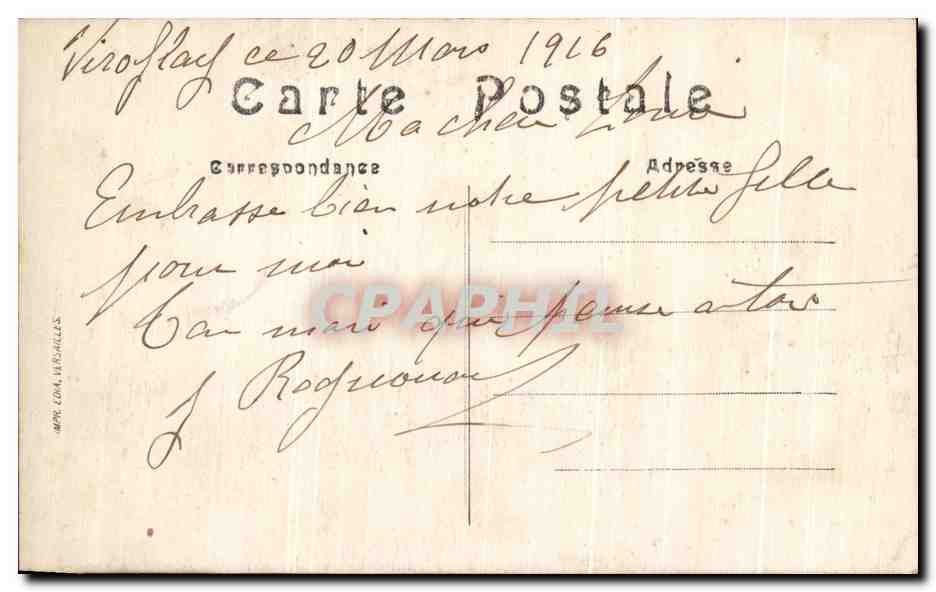 Viroflay ce 20 Mars 1916
Carte Postale
Ma chere
Correspondance
Adresse
Embrasse bien notre petite fille
pour moi
CPAPHIL
Ton mari qui pense a toi
J
IMP. EDIA, VERSAILLES.